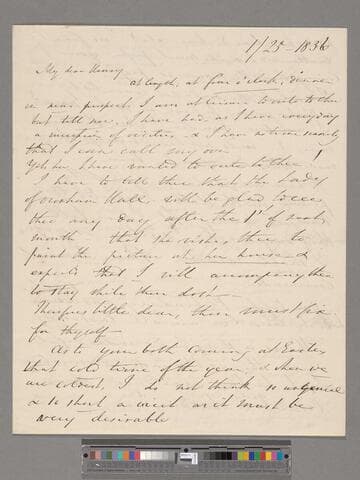 1/25 - 1836
My dear Henry
at length, at four o'clock, dinner
in near prospect, I am at leisure to write to thee
but till now, I have had as I have every day
a succession of visitors & I have no time
that I can call my own
Yet how I have wanted to write to thee !
I have to tell thee that the Lady
of Hall will be glad to see
thee any day after the 1st of next
month that she wishes thee to
paint the picture at her house &
expects that I will accompany thee
to stay while thou dost
Therefore little dear, thou must fix
for thyself
As to your both coming at Easter
that cold time of the year, & when we
are coldest, I do not think so
& so short a visit as it must be
very desirable